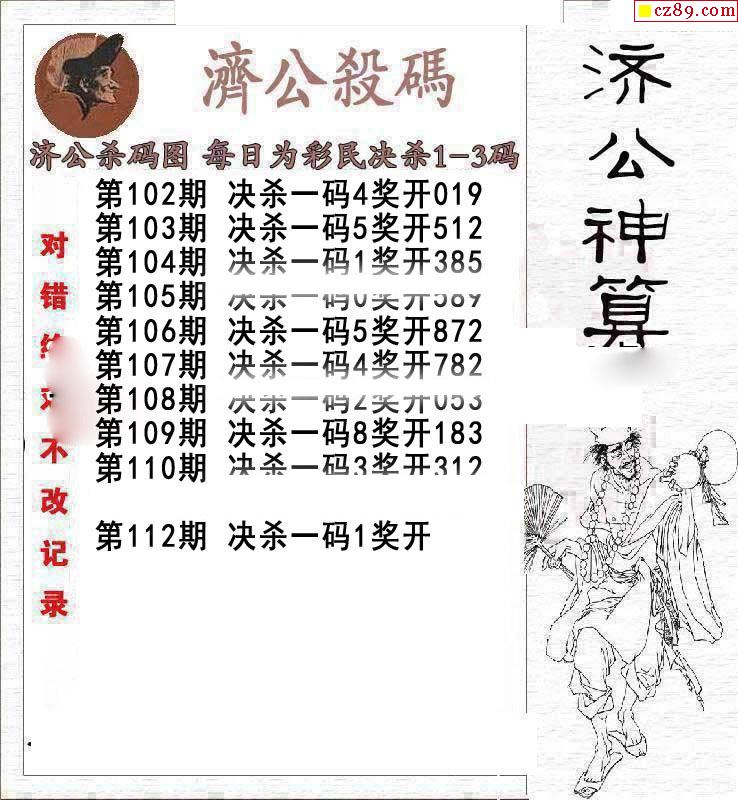 cz89.com
濟公殺碼
济公杀码图 每日为彩民决杀1-3码
第102期 决杀一码4奖开019
第103期 决杀一码5奖开512
第104期 决杀一码1奖开385
第105期 决杀一码0奖开589
第106期 决杀一码5奖开872
第107期 决杀一码4奖开782
第108期 决杀一码2奖开053
第109期 决杀一码8奖开183
第110期 决杀一码3奖开312
第112期 决杀一码1奖开
对错绝对不改记录
济公神算